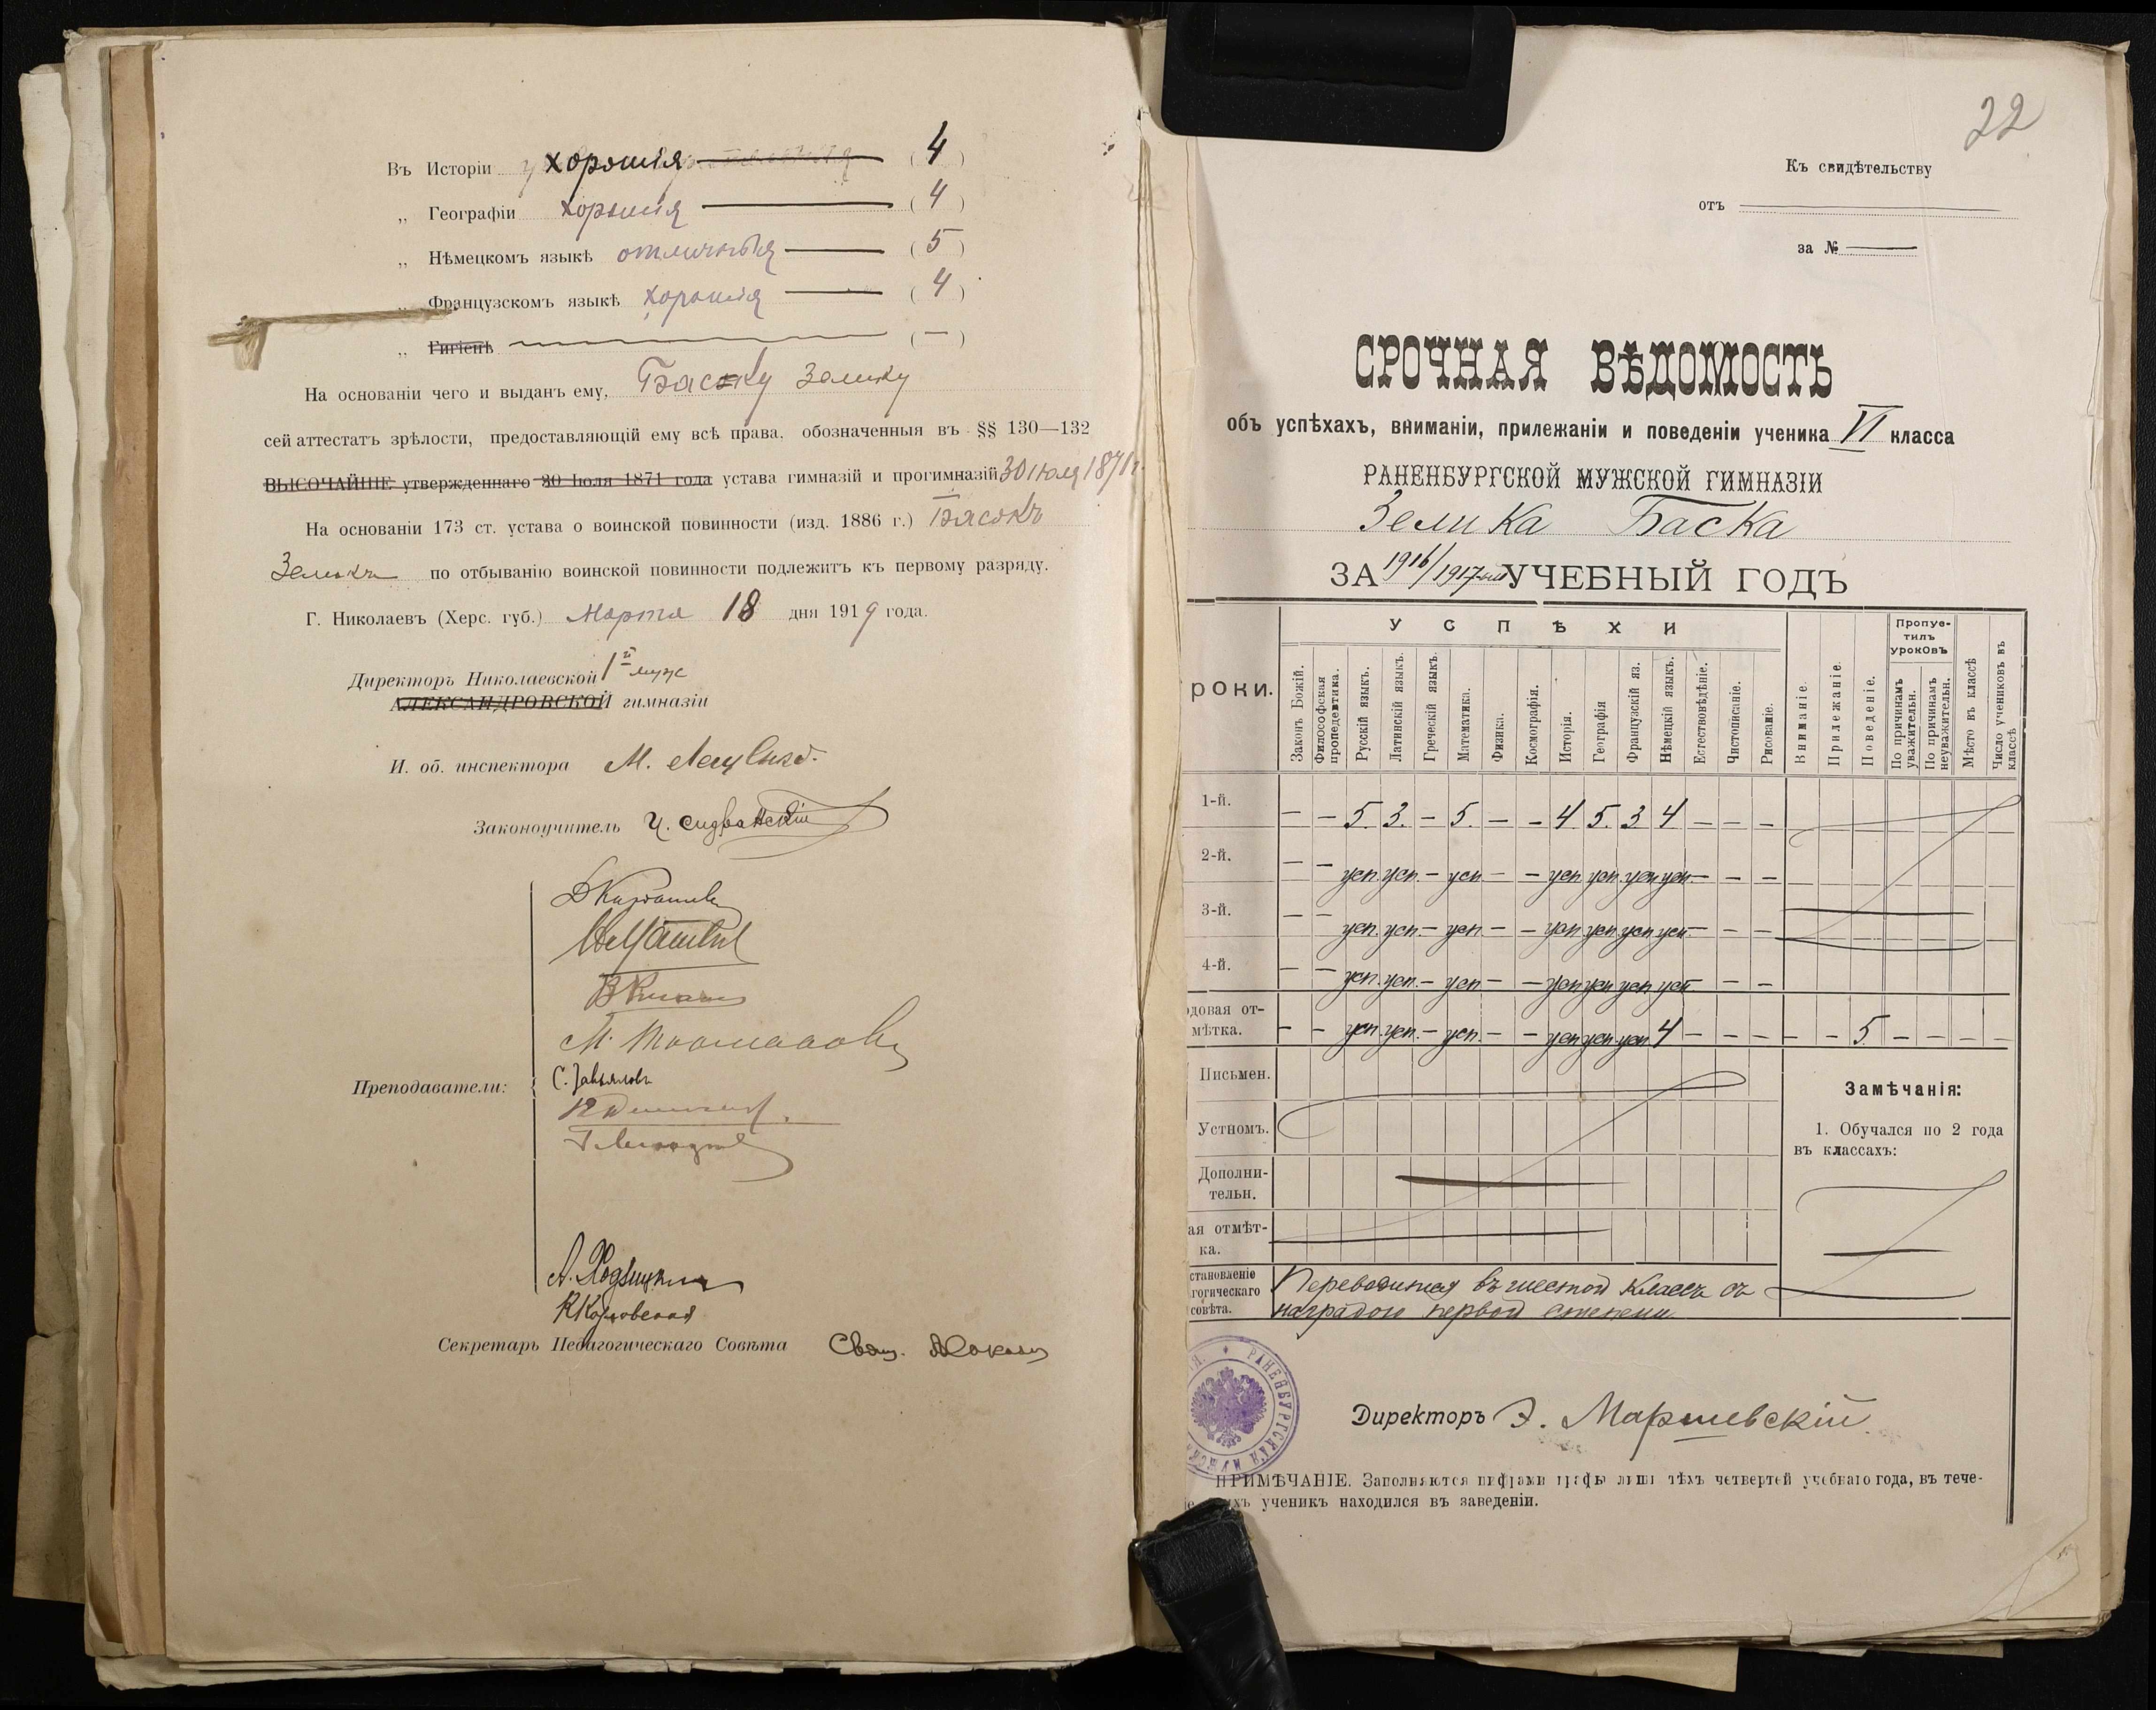 Въ Исторіи хорошія (4)
„ Географіи хорошія (4)
„ Нѣмецкомъ языкѣ отличныя (5)
„ Французскомъ языкѣ хорошія (4)
„ Гигіенѣ (—)
На основаніи чего и выданъ ему, Баску Зелику
сей аттестатъ зрѣлости, предоставляющій ему всѣ права, обозначенныя въ §§ 130—132
ВЫСОЧАЙШЕ утвержденнаго 30 Іюля 1871 года устава гимназій и прогимназій 30 іюля 1871 г.
На основаніи 173 ст. устава о воинской повинности (изд. 1886 г.) Басокъ
Зеликъ по отбыванію воинской повинности подлежитъ къ первому разряду.
Г. Николаевъ (Херс. губ.) Марта 18 дня 1919 года.
Директоръ Николаевской 1й муж
АЛЕКСАНДРОВСКОЙ гимназіи
И. об. инспектора М.
Законоучитель
Преподаватели:
Секретарь Педагогическаго Совѣта Свящ.
22
Къ свидѣтельству
отъ
за №
СРОЧНАЯ ВѢДОМОСТЬ
объ успѣхахъ, вниманіи, прилежаніи и поведеніи ученика VI класса
РАНЕНБУРГСКОЙ МУЖСКОЙ ГИМНАЗІИ
Зелика Баска
ЗА 1916/1917-ый УЧЕБНЫЙ ГОДЪ
роки.
УСПѢХИ
Законъ Божій.
Философская пропедевтика.
Русскій языкъ.
Латинскій языкъ.
Греческій языкъ.
Математика.
Физика.
Космографія.
Исторія.
Географія
Французскій яз.
Нѣмецкій языкъ.
Естествовѣдѣніе.
Чистописаніе.
Рисованіе.
Вниманіе.
Прилежаніе.
Поведеніе.
Пропустилъ уроковъ
По причинамъ уважительн.
По причинамъ неуважительн.
Мѣсто въ классѣ
Число учениковъ въ классѣ
1-й. — — 5. 3. — 5. — — 4 5. 3 4 — — —
2-й. — — усп. усп. — усп — — усп усп. усп усп. — — —
3-й. — — усп. усп. — усп — — усп усп усп усп — — —
4-й. — — усп. усп. — усп — — усп усп усп усп — — —
одовая от-
мѣтка. — — усп. усп. — усп. — — усп усп усп 4 — — — — — 5. — — — —
Письмен.
Устномъ.
Дополни-
тельн.
ая отмѣт-
ка.
Замѣчанія:
1. Обучался по 2 года
въ классахъ:
становленіе
гогическаго
совѣта.
Переводится въ шестой классъ съ
наградою первой степени.
РАНЕНБУРГСКАЯ МУЖСКАЯ
Директоръ Э. Маршевскій.
ПРИМѢЧАНІЕ. Заполняются цифрами графы лишь тѣхъ четвертей учебнаго года, въ тече-
ихъ ученикъ находился въ заведеніи.